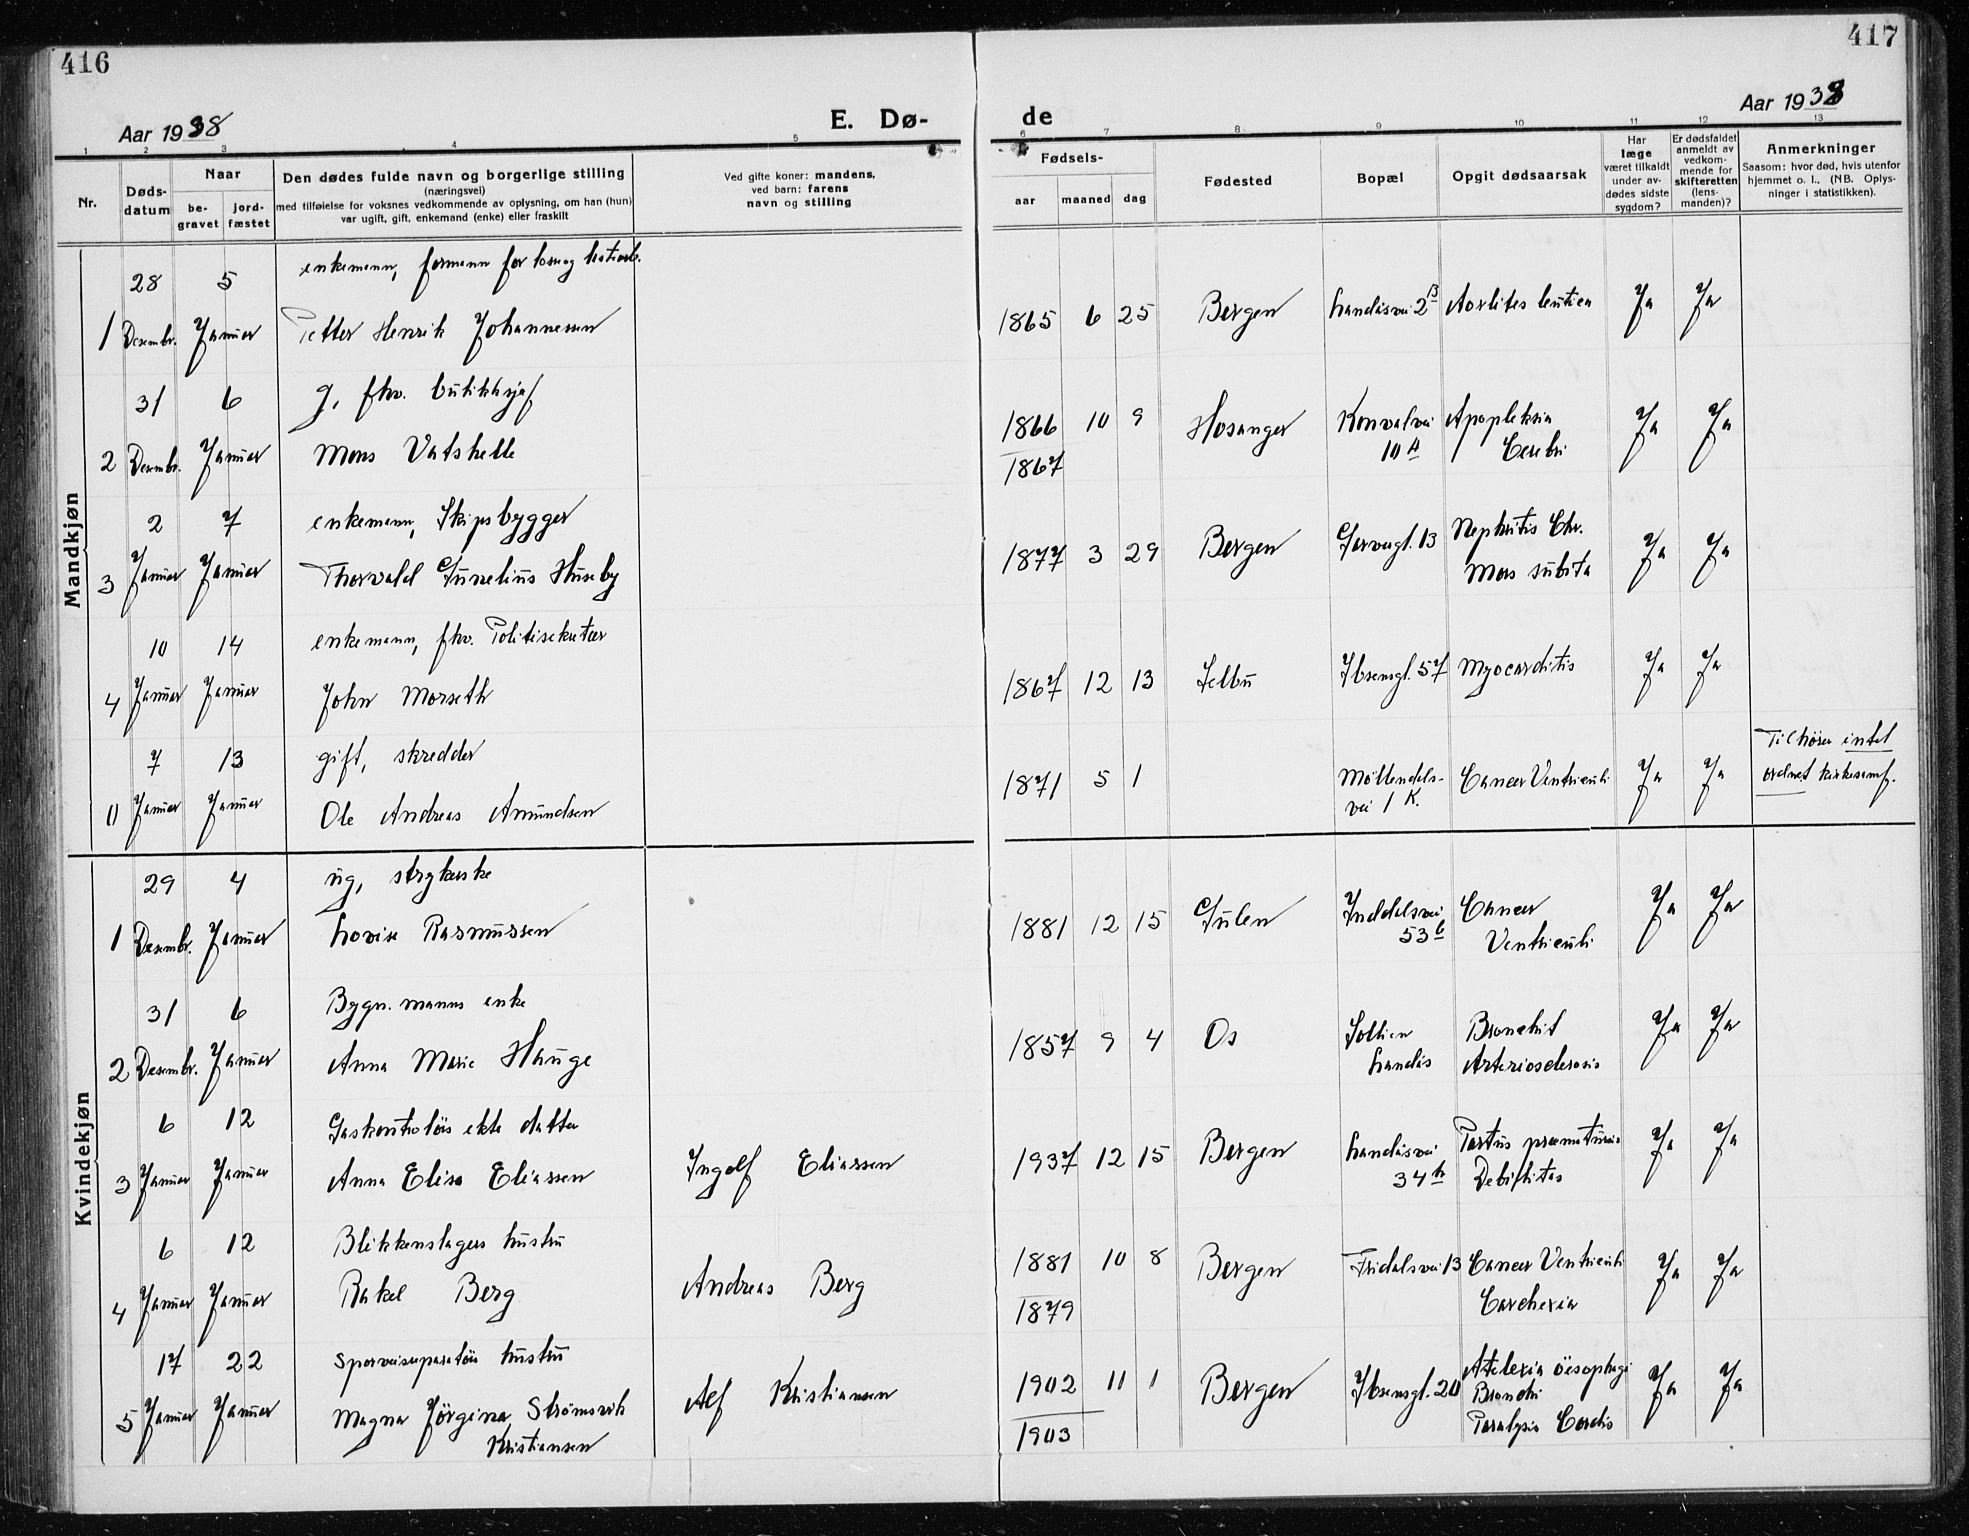 416
417
Aar 1938
E. Dø-
de
Aar 1938
1 2 3 4 5 6 7 8 9 10 11 12 13
Nr.
Døds-
datum
Naar
be-
gravet
jord-
fæstet
Den dødes fulde navn og borgerlige stilling
(næringsvei)
med tilføielse for voksnes vedkommende av oplysning, om han (hun)
var ugift, gift, enkemand (enke) eller fraskilt
Ved gifte koner: mandens,
ved barn: farens
navn og stilling
Fødsels-
aar maaned dag
Fødested
Bopæl
Opgit dødsaarsak
Har
læge
været tilkaldt
under av-
dødes sidste
sygdom?
Er dødsfaldet
anmeldt av
vedkom-
mende for
skifteretten
(lens-
manden)?
Anmerkninger
Saasom: hvor død, hvis utenfor
hjemmet o. l., (NB. Oplys-
ninger i statistikken).
Mandkjøn
28 5 enkemann, formann for losse og
1 Desembr. Januar Petter Henrik Johannessen 1865 6 25 Bergen Landåsvei 2 B Aortites luetica Ja Ja
31 6 g, fhv. butikksjef
2 Desembr. Januar Mons Vatshelle 1866 10 9 Hosanger Konvalvei Apopleksia Ja Ja
1867 10 A Cerebri
2 7 enkemann, Skipsbygger
3 Januar Januar Thorvald Gunelius Huseby 1877 3 29 Bergen Garvergt. 13 Nephritis Chr. Ja Ja
Mors subita
10 14 enkemann, fhv. Politisekretær
4 Januar Januar John Morseth 1867 12 13 Selbu Ibsensgt. 57 Myocarditis Ja Ja
7 13 gift, skredder
0 Januar Januar Ole Andreas Amundsen 1871 5 1 Møllendals-
vei 1 K. Cancer Ventriculi Ja Ja Tilhører intet
ordnet kirkesamf.
Kvindekjøn
29 4 ug, strykerske
1 Desembr. Januar Lovise Rasmussen 1881 12 15 Gulen Inddalsvei Cancer Ja Ja
53 b Ventriculi
31 6 Bygn. manns enke
2 Desembr. Januar Anna Marie Hauge 1857 9 4 Os Solhien Bronchit Ja Ja
Landås Arteriosclerosis
6 12 Gaskontrolørs ekte datter
3 Januar Januar Anna Elisa Eliassen Ingolf Eliassen 1937 12 15 Bergen Landåsvei Partus præmaturus Ja Ja
34 b Debilitas
6 12 Blikkenslagers hustru
4 Januar Januar Rakel Berg Andreas Berg 1881 10 8 Bergen Fridalsvei 13 Cancer Ventriculi Ja Ja
1879 Carchexia
17 22 hustru
5 Januar Januar Magna Jørgina Strømsvik Alf Kristiansen 1902 11 1 Bergen Ibsensgt. 20 øesophagi Ja Ja
Kristiansen 1903 Bronchi
Paralysis Cordis